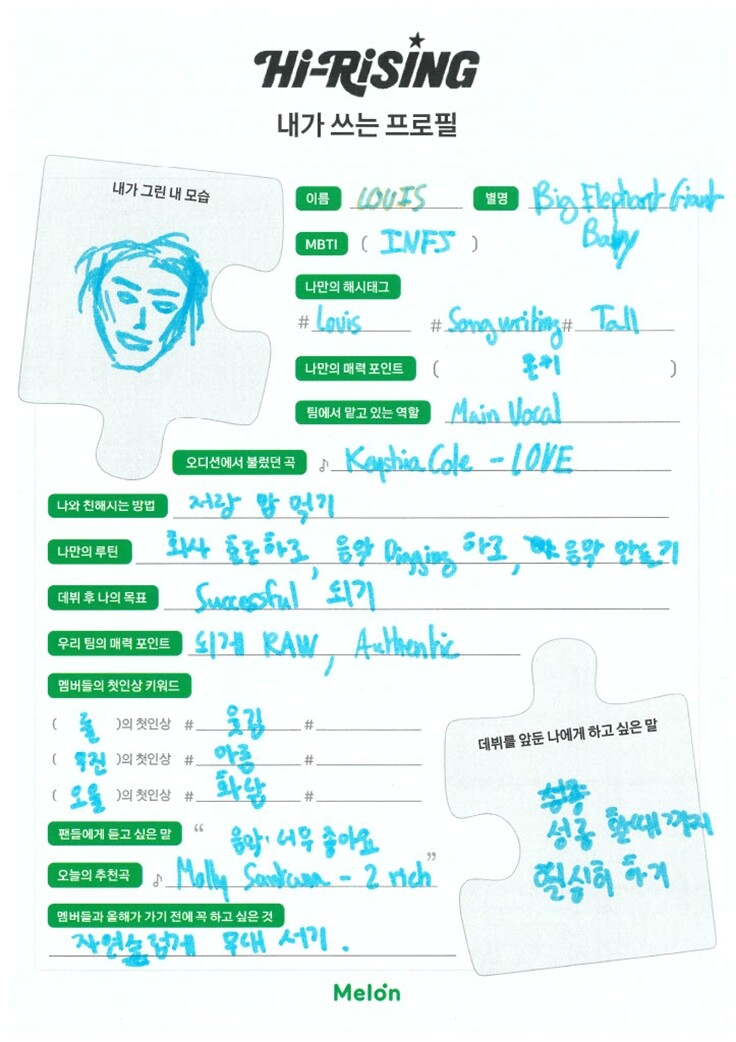 Hi-RiSiNG
내가 쓰는 프로필
내가 그린 내 모습
이름 LOUIS 별명 Big Elephant Giant Baby
MBTI ( INFJ )
나만의 해시태그
# Louis # Songwriting # Tall
나만의 매력 포인트 ( )
팀에서 맡고 있는 역할 Main Vocal
오디션에서 불렀던 곡 ♪ Keyshia Cole - LOVE
나와 친해지는 방법 저랑 밥 먹기
나만의 루틴 회사 출근하고, 음악 Digging 하고, 음악 만들기
데뷔 후 나의 목표 Successful 되기
우리 팀의 매력 포인트 되게 RAW, Authentic
멤버들의 첫인상 키워드
( )의 첫인상 # 웃김 #
( 우진 )의 첫인상 # #
( 오율 )의 첫인상 # #
팬들에게 듣고 싶은 말 “ 음악 너무 좋아요 ”
오늘의 추천곡 ♪ Molly Santana - 2 rich
멤버들과 올해가 가기 전에 꼭 하고 싶은 것
자연스럽게 무대 서기.
데뷔를 앞둔 나에게 하고 싶은 말
성공 할때 까지
열심히 하기
Melon